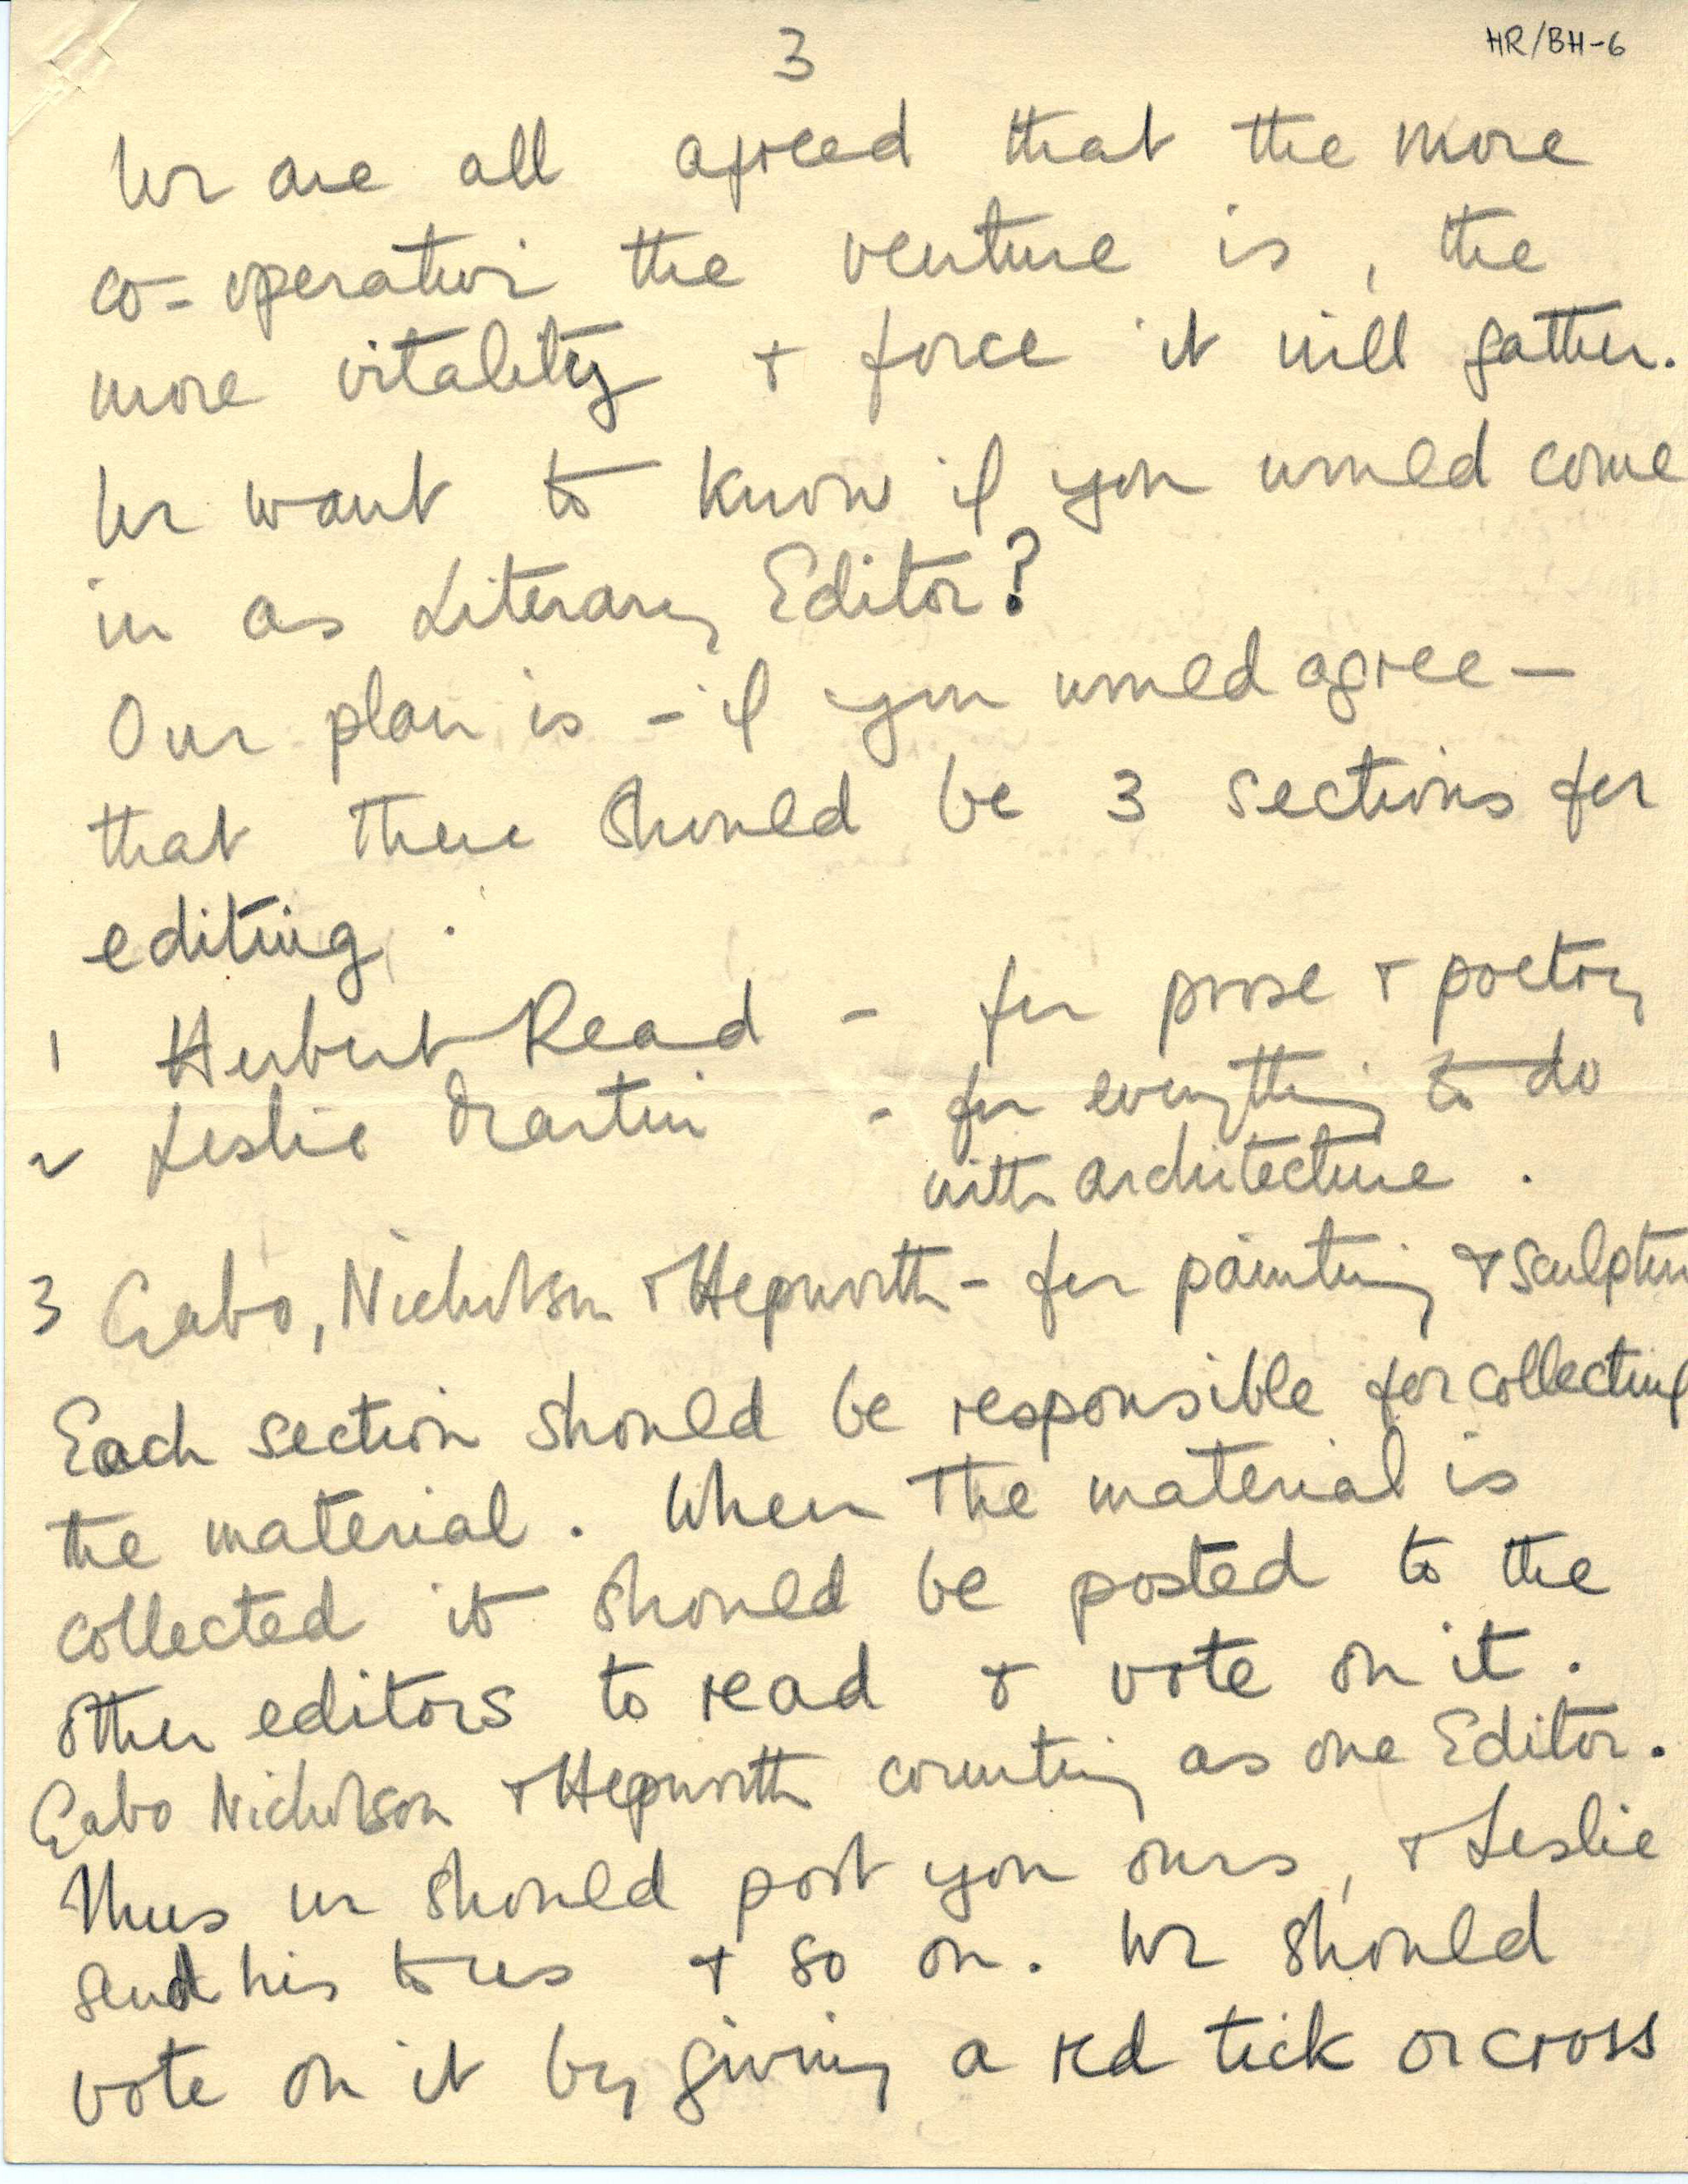 3
HR/BH-6
We are all agreed that the more
co=operative the venture is, the
more vitality + force it will gather.
We want to know if you would come
in as Literary Editor?
Our plan is - if you would agree —
that there should be 3 sections for
editing.
1 Herbert Read - for prose + poetry
2 Leslie Martin - for everything to do
with architecture.
3 Gabo, Nicholson + Hepworth - for painting + sculpture
Each section should be responsible for collecting
the material. When the material is
collected it should be posted to the
other editors to read + vote on it.
Gabo Nicholson + Hepworth counting as one Editor.
Thus we should post you ours, + Leslie
send his to us + so on. We should
vote on it by giving a red tick or cross